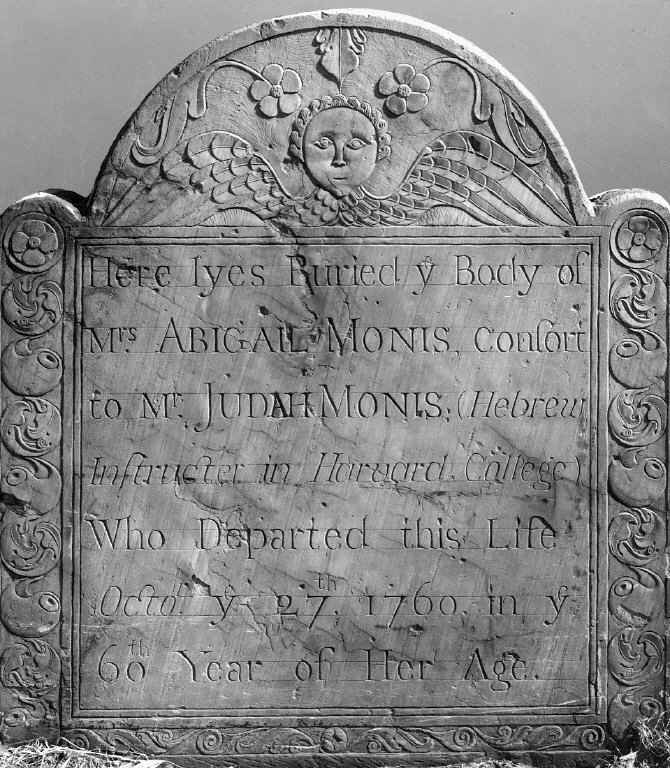 Here lyes Buried yͤ Body of
Mʳˢ ABIGAIL MONIS, Conſort
to Mʳ. JUDAH MONIS, (Hebrew
Inſtructer in Harvard College)
Who Departed this Life
Octoʳ. yͤ 27ᵗʰ, 1760. in yͤ
60ᵗʰ Year of Her Age.